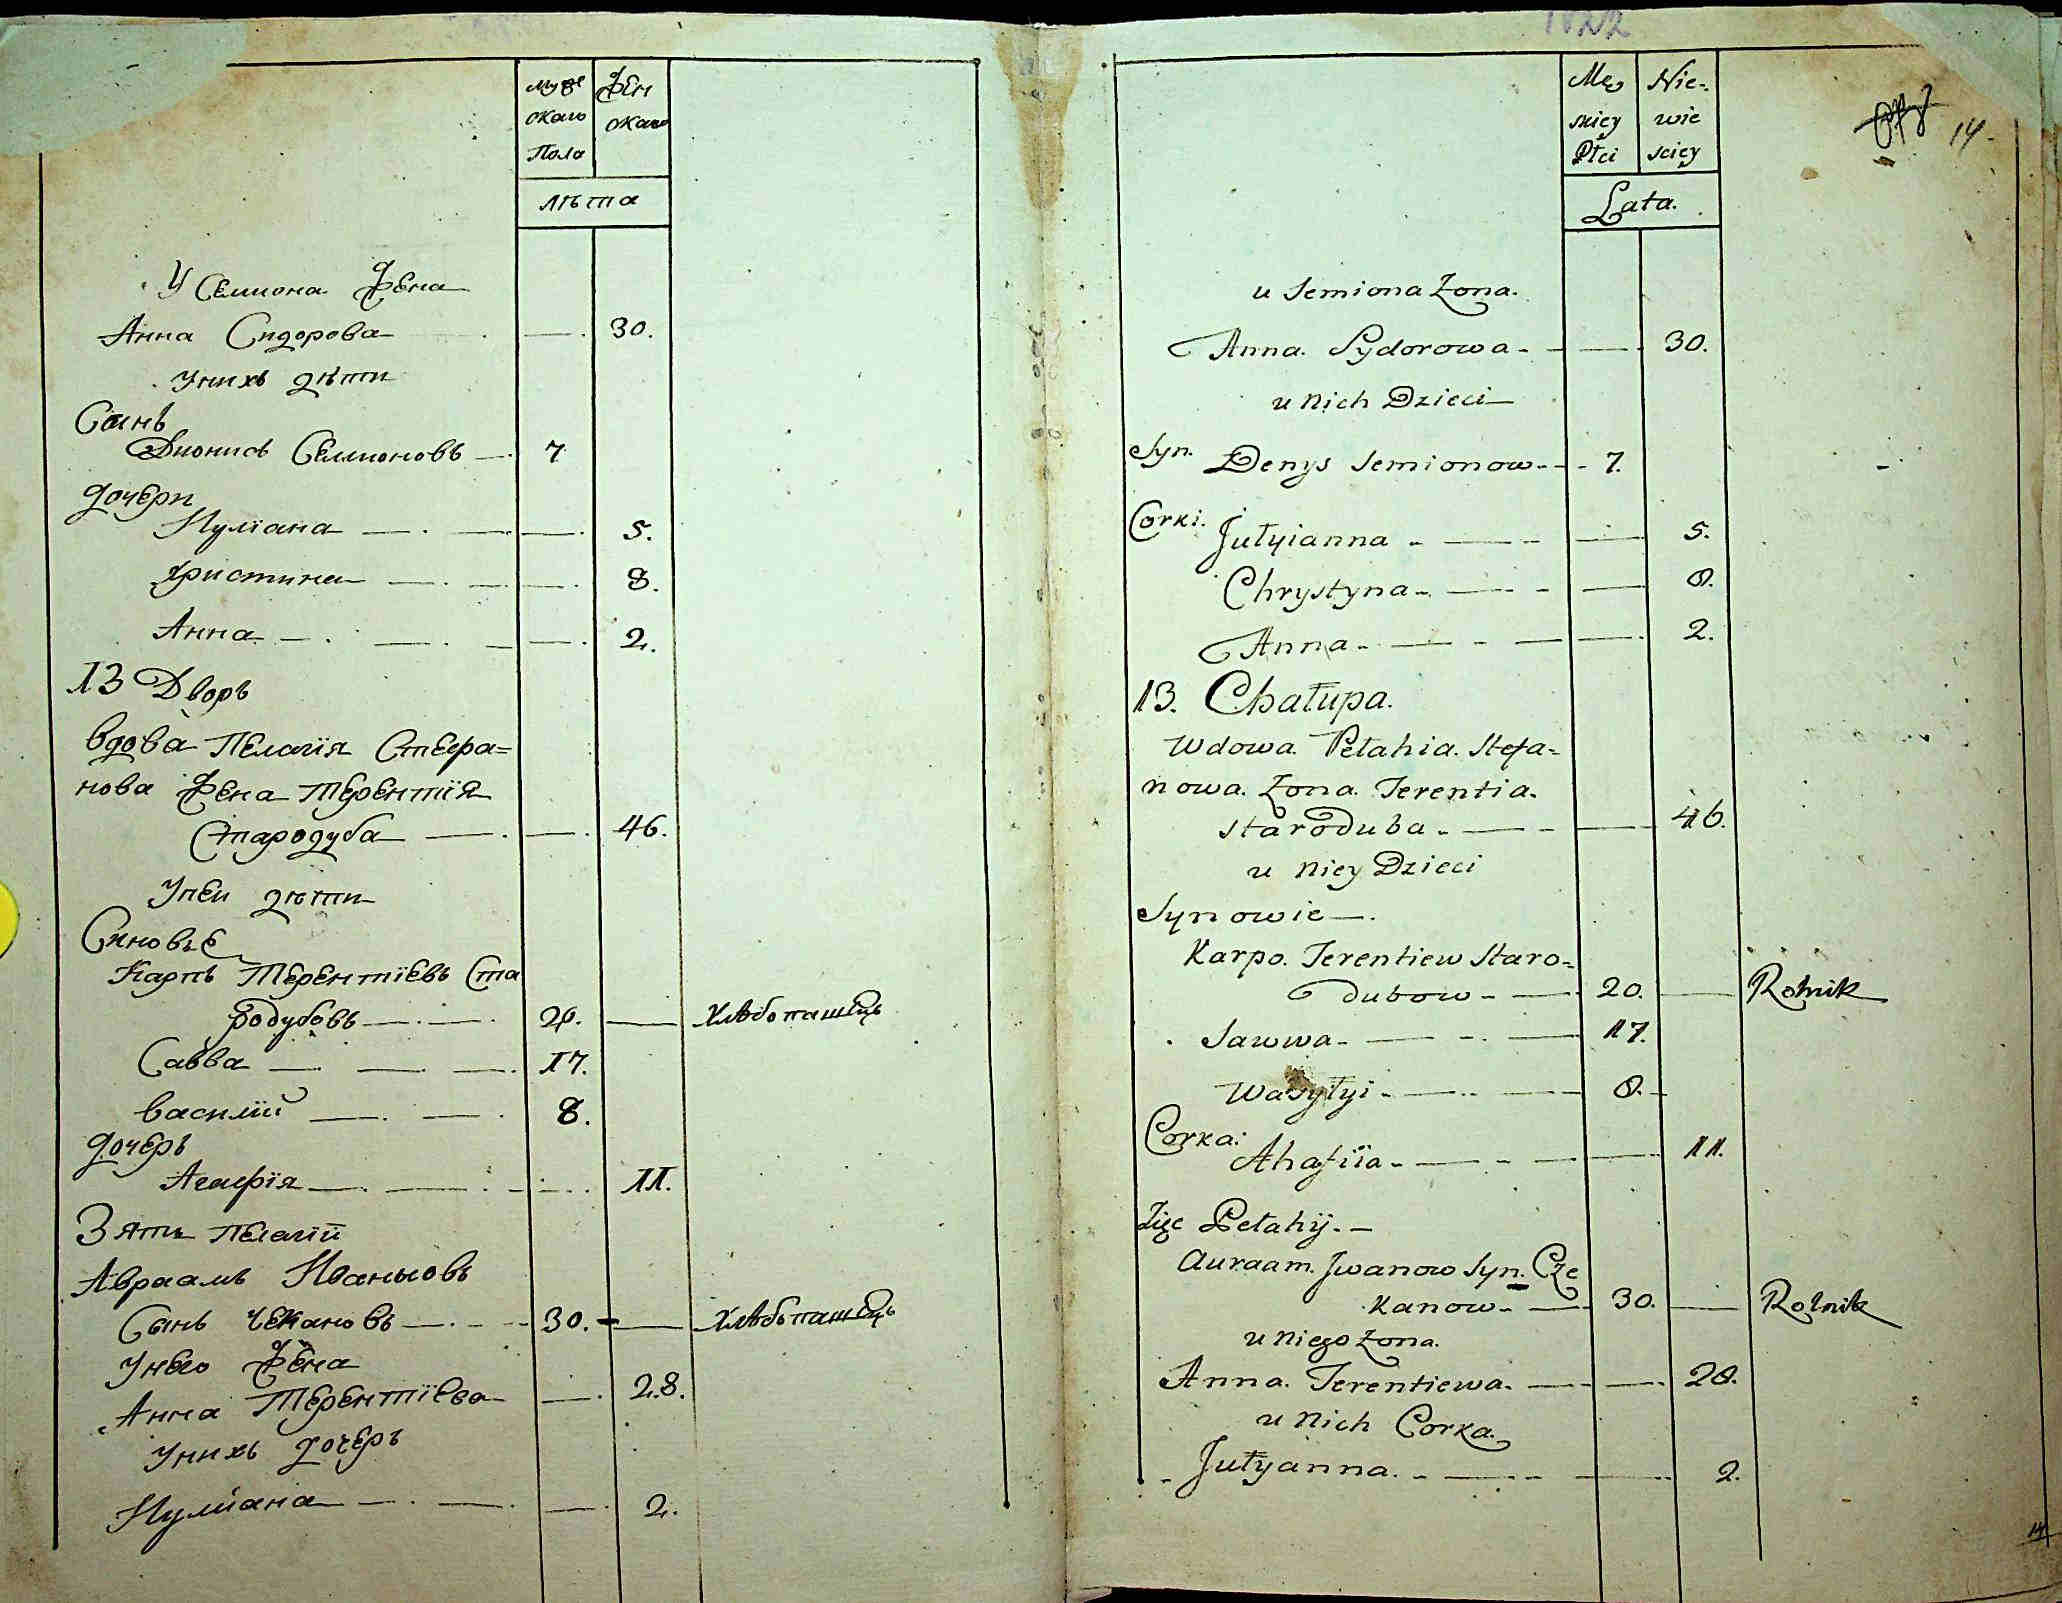 Мужескаго Пола
Женскаго
лѣта
У Семиона Жена
Анна Сидорова — 30.
У нихъ дѣти
Сынъ
Дионисъ Семионовъ — 7
дочери
Иулїана — 5.
Христина — 8.
Анна — 2.
13 Дворъ
Вдова Пелагїя Стефа=
нова Жена Терентїя
Стародуба — 46.
У неи дѣти
Синовье
Карпъ Терентїевъ Ста
родубовъ — 20. — Хлѣбопашецъ
Савва — 17.
Василїй — 8.
дочерь
Агафїя — 11.
Зять Пелагїи
Авраамъ Ивановъ
Сынъ Чекановъ — 30. — Хлѣбопашецъ
У него Жена
Анна Терентїева — 28.
У нихъ дочерь
Иулїана — 2.
1822
14.
Męskiey Płci
Niewiesciey
Lata.
u Semiona Żona.
Anna. Sydorowa — 30.
u Nich Dzieci
Syn. Denys Semionow — 7.
Corki. Jułyianna — 5.
Chrystyna — 8.
Anna — 2.
13. Chałupa.
Wdowa. Pełahia. Stefa=
nowa. Żona. Terentia.
Staroduba — 46.
u Niey Dzieci
Synowie —.
Karpo. Terentiew Staro=
dubow — 20. — Rolnik
Sawwa — 17.
Wasyłyi — 8.
Corka: Ahafiia — 11.
Zięc Pełahij. —
Auraam. Jwanow Syn. Cze
kanow — 30. — Rolnik
u Niego Żona.
Anna. Terentiewa. — 28.
u Nich Corka.
Jułyanna. — 2.
14